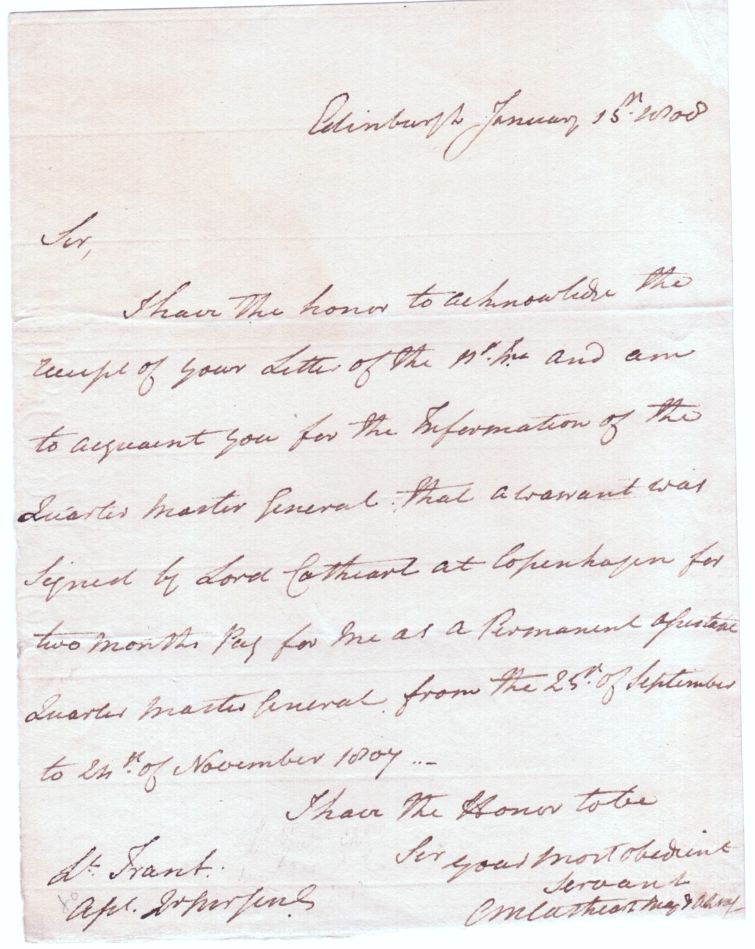 Edinburgh January 15th 1808
Sir,
I have the honor to acknowledge the
receipt of your Letter of the 11th Ins and am
to acquaint you for the Information of the
Quarter Master General that a warrant was
signed by Lord Cathcart at Copenhagen for
two months Pay for me as a Permanent Assistant
Quarter Master General from the 25th of September
to 24th of November 1807
I have the Honor to be
Sir your most obedient
Servant
Lt. Trant
CM Cathcart